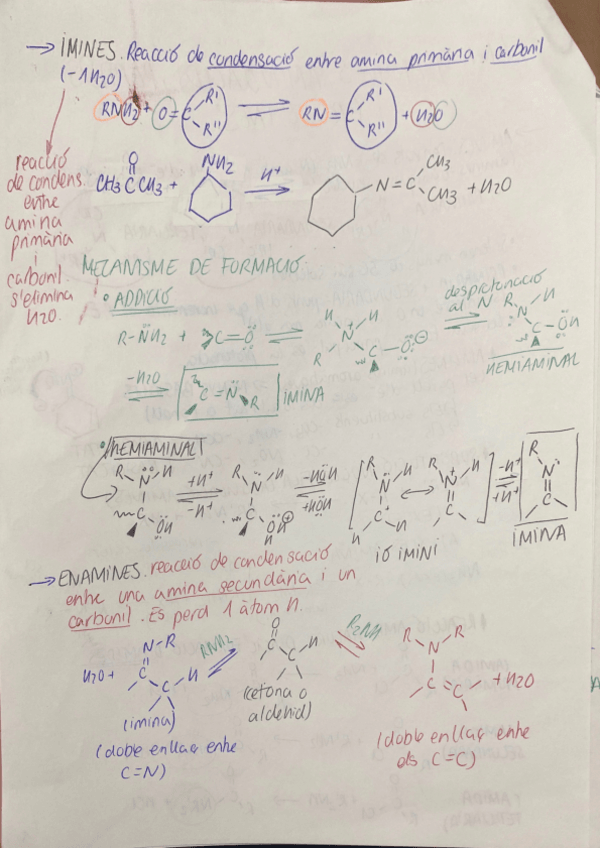 → IMINES. Reacció de condensació entre amina primària i carbonil
(-1H2O)
RNH2 + O=C R' R'' ⇌ RN=C R' R'' + H2O
reacció
de condens.
entre
amina
primària
i
carbonil.
s'elimina
H2O.
O
CH3CCH3 + NH2 H+ → N=C CH3 CH3 + H2O
MECANISME DE FORMACIÓ
• ADDICIÓ
R-NH2 + C=O ⇌ H H R N+ C O⊖
desprotonació
al N
⇌ R N H C OH
HEMIAMINAL
-H2O
⇌ [C=N R] IMINA
• HEMIAMINALT
R N H C OH
+H+
-H+
R N H C OH⊕ H
-HÖH
+HÖH
[R N H C+ H ↔ R N+ H C]
-H+
+H+
R N C
IÓ IMINI
IMINA
→ ENAMINES. reacció de condensació
entre una amina secundària i un
carbonil. Es perd 1 àtom H.
H2O + N-R C C H
RNH2
O C C H
R2NH
R N R C=C + H2O
(imina)
(cetona o
aldehid)
(doble enllaç entre
C=N)
(doble enllaç entre
els C=C)